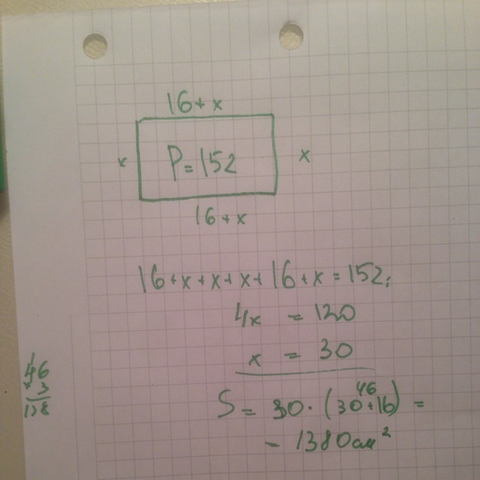 16+x
x
P=152
x
16+x
16+x+x+x+16+x=152;
4x = 120
x = 30
46
S = 30·(30+16) =
= 1380см²
1
46
×3
138